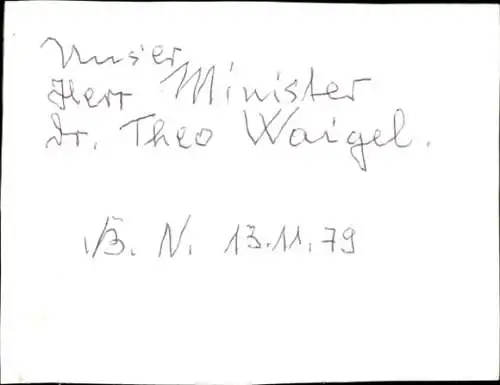 Unser
Herr Minister
Dr. Theo Waigel.
B. N. 13.11.79